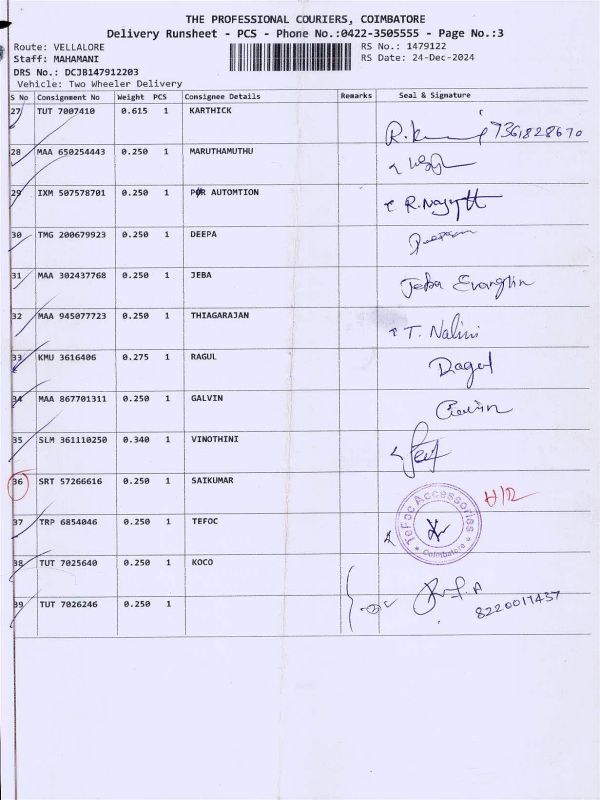 THE PROFESSIONAL COURIERS, COIMBATORE
Delivery Runsheet - PCS - Phone No.:0422-3505555 - Page No.:3
Route: VELLALORE
RS No.: 1479122
Staff: MAHAMANI
RS Date: 24-Dec-2024
DRS No.: DCJB147912203
Vehicle: Two Wheeler Delivery
S No Consignment No Weight PCS Consignee Details Remarks Seal & Signature
27 TUT 7007410 0.615 1 KARTHICK
7361828670
28 MAA 650254443 0.250 1 MARUTHAMUTHU
29 IXM 507578701 0.250 1 AUTOMTION
30 TMG 200679923 0.250 1 DEEPA
31 MAA 302437768 0.250 1 JEBA Jeba Evanglin
32 MAA 945077723 0.250 1 THIAGARAJAN T. Nalini
33 KMU 3616406 0.275 1 RAGUL Ragul
34 MAA 867701311 0.250 1 GALVIN
35 SLM 361110250 0.340 1 VINOTHINI
36 SRT 57266616 0.250 1 SAIKUMAR
37 TRP 6854046 0.250 1 TEFOC TeFoc Accessories Coimbatore
38 TUT 7025640 0.250 1 KOCO
39 TUT 7026246 0.250 1 8220017437